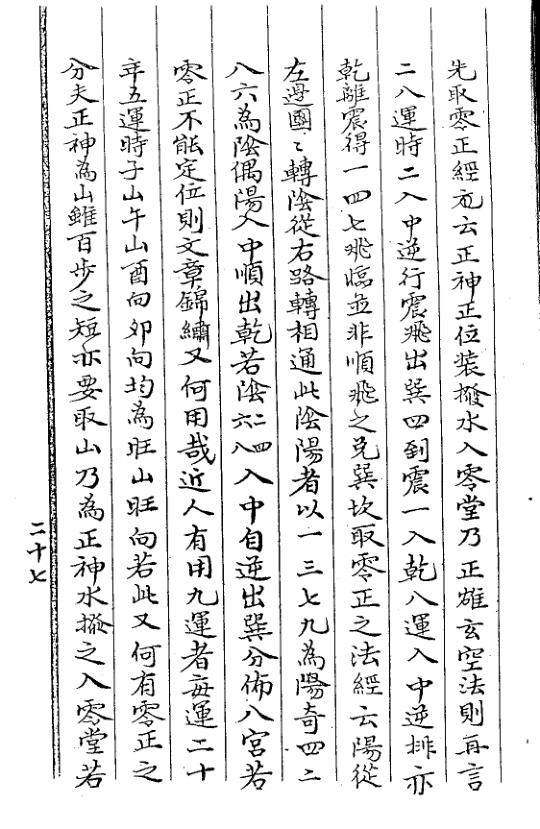 先取零正經亦云正神正位裝撥水入零堂乃正雄玄空法則再言
二八運時二入中逆行震飛出巽四到震一入乾八運入中逆排亦
乾離震得一四七飛臨並非順飛之兌巽坎取零正之法經云陽從
左邊團〻轉陰從右路轉相通此陰陽者以一三七九為陽奇四二
八六為陰偶陽入中順出乾若陰二四六八入中自逆出巽分佈八宮若
零正不能定位則文章錦繡又何用哉近人有用九運者每運二十
年五運時子山午山酉向卯向均為旺山旺向若此又何有零正之
分夫正神為山雖百步之短亦要取山乃為正神水撥之入零堂若
二十七